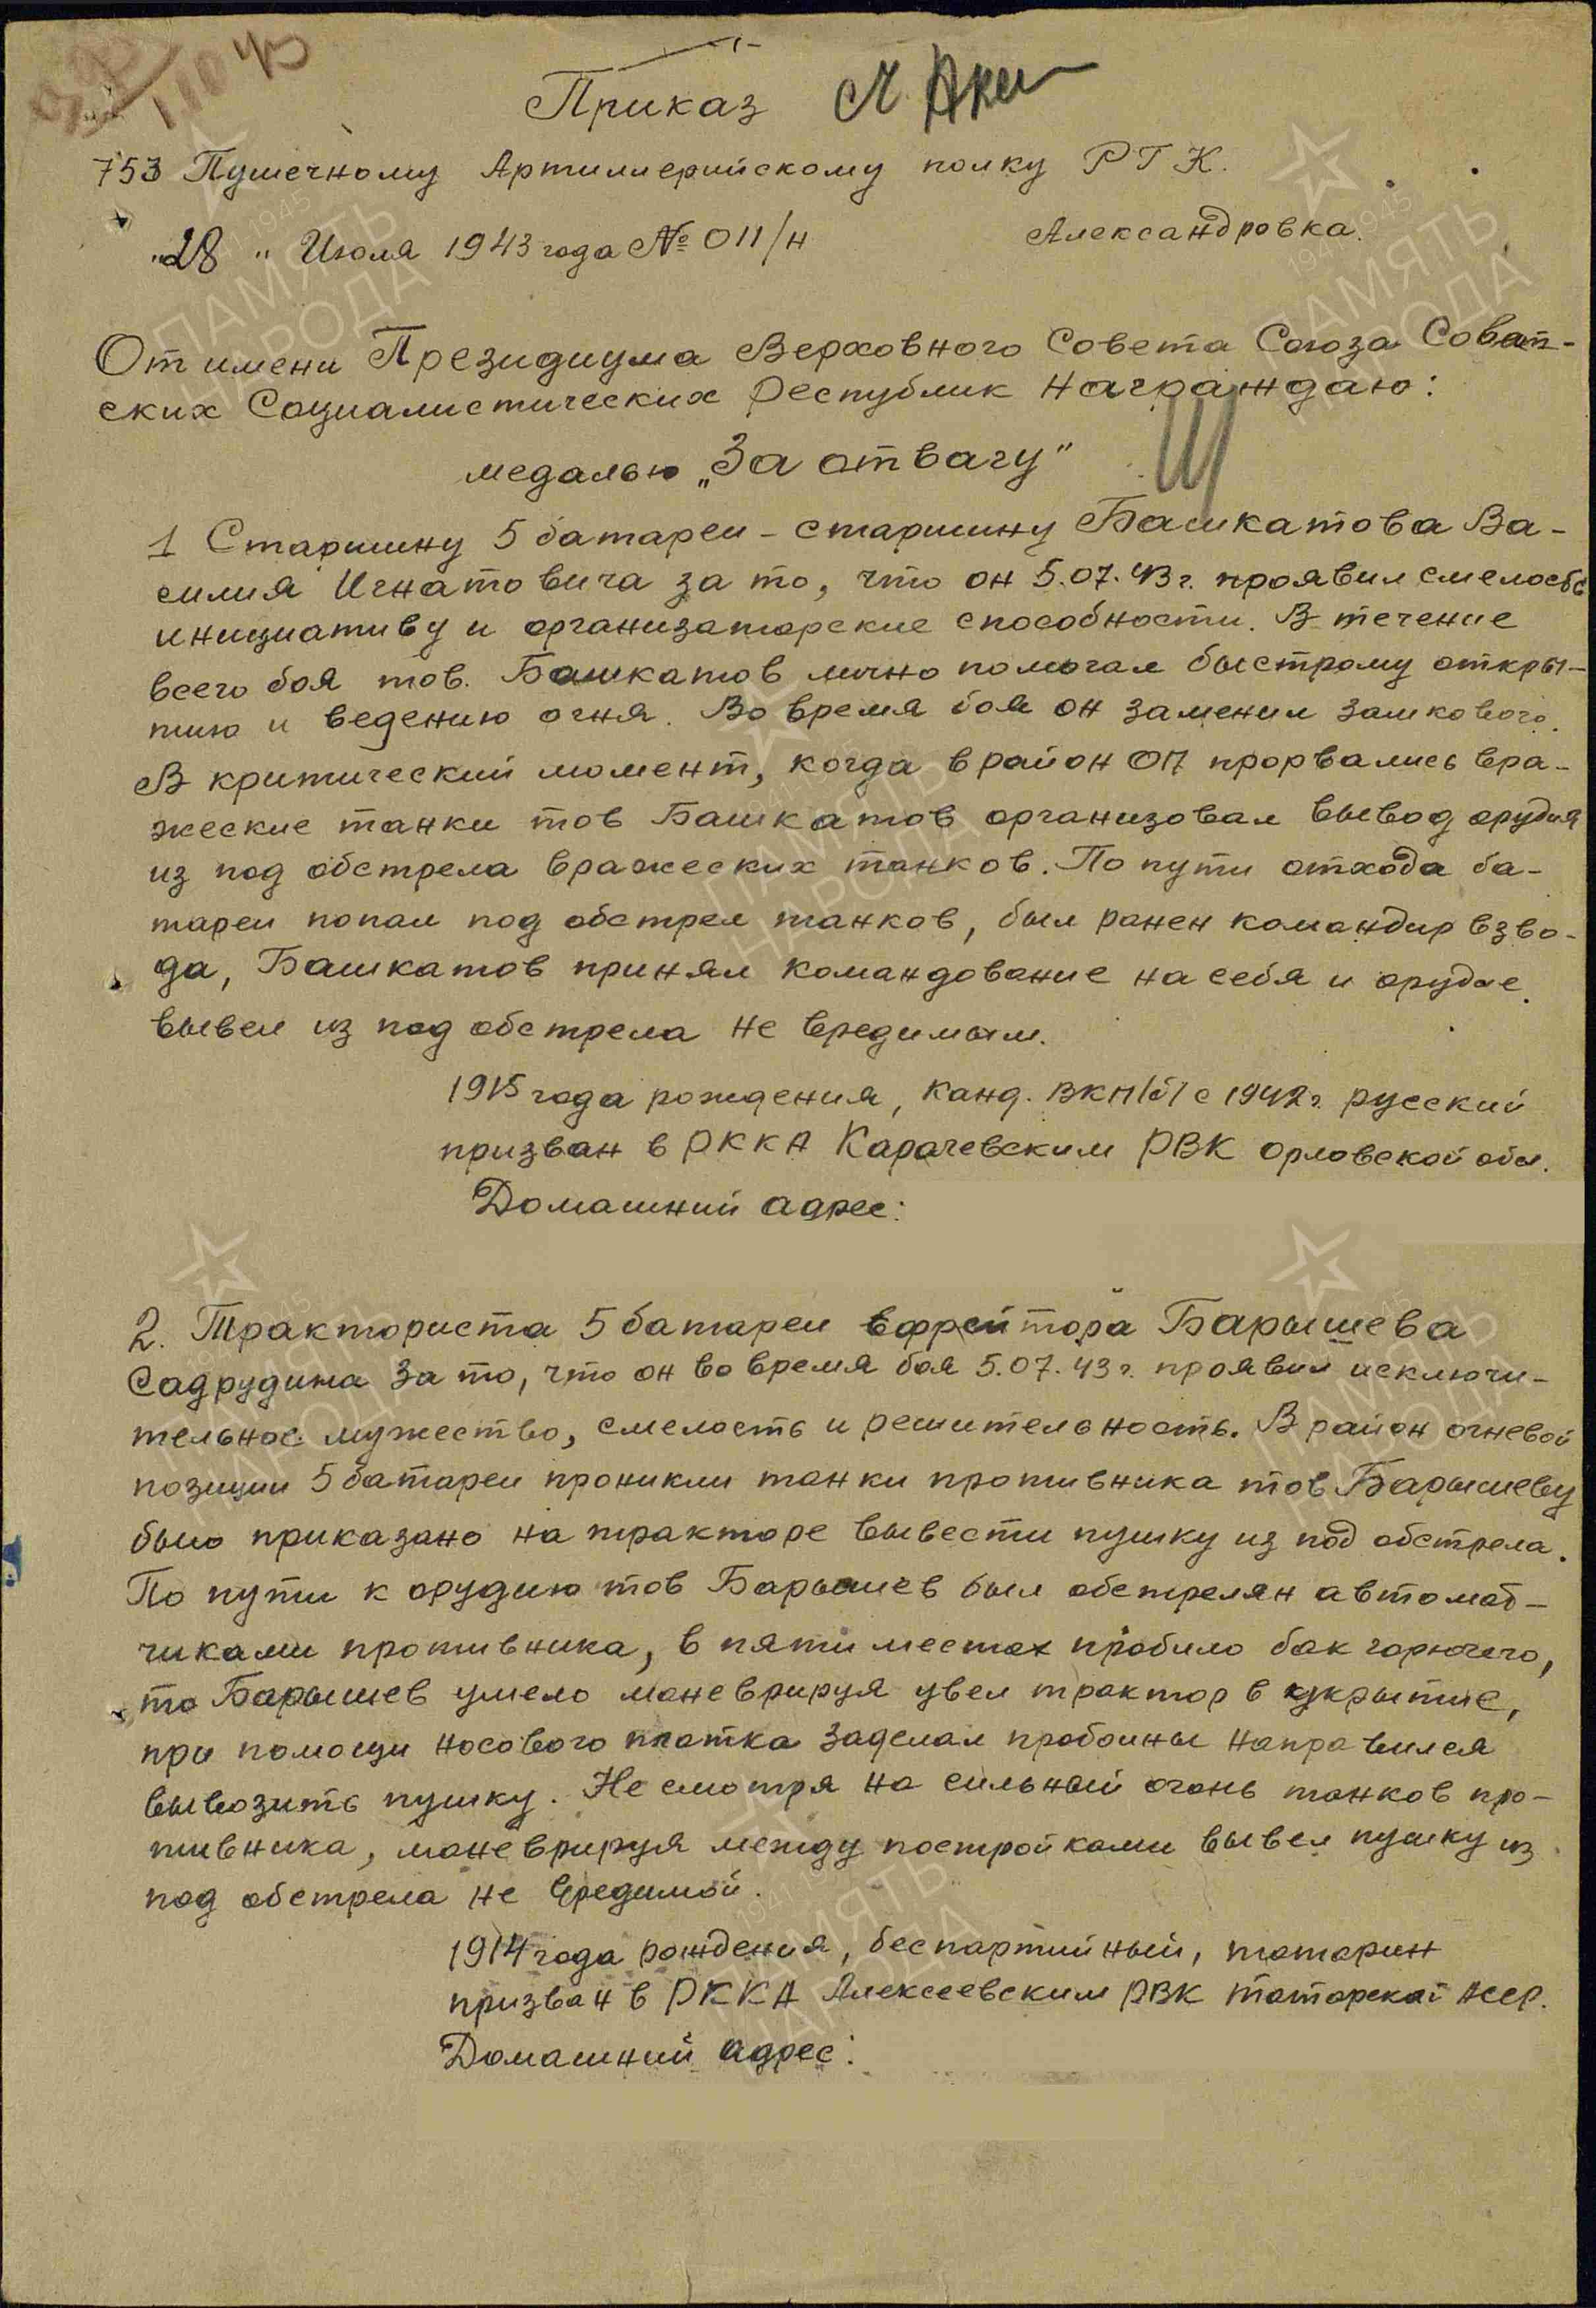 Приказ
753 Пушечному Артиллерийскому полку РГК.
"28" Июля 1943 года № 011/н Александровка.
От имени Президиума Верховного Совета Союза Совет-
ских Социалистических Республик награждаю:
медалью „За отвагу"
1 Старшину 5 батареи - старшину Башкатова Ва-
силия Игнатовича за то, что он 5.07.43 г. проявил смелость
инициативу и организаторские способности. В течение
всего боя тов. Башкатов лично помогал быстрому откры-
тию и ведению огня. Во время боя он заменил замкового.
В критический момент, когда в район ОП прорвались вра-
жеские танки тов Башкатов организовал вывод орудия
из под обстрела вражеских танков. По пути отхода ба-
тареи попал под обстрел танков, был ранен командир взво-
да, Башкатов принял командование на себя и орудие
вывел из под обстрела не вредимым.
1915 года рождения, канд. ВКП/б/ с 1942 г. русский
призван в РККА Карачевским РВК Орловской обл.
Домашний адрес:
2. Тракториста 5 батареи ефрейтора Барышева
Садрудина за то, что он во время боя 5.07.43 г. проявил исключи-
тельное мужество, смелость и решительность. В район огневой
позиции 5 батареи проникли танки противника тов Барышеву
было приказано на тракторе вывести пушку из под обстрела.
По пути к орудию тов Барышев был обстрелян автомат-
чиками противника, в пяти местах пробило бак горючего,
то Барышев умело маневрируя увел трактор в укрытие,
при помощи носового платка заделал пробоины направился
вывозить пушку. Не смотря на сильный огонь танков про-
тивника, маневрируя между постройками вывел пушку из
под обстрела не вредимой.
1914 года рождения, беспартийный, татарин
призван в РККА Алексеевским РВК Татарской АССР.
Домашний адрес:
ПАМЯТЬ
НАРОДА